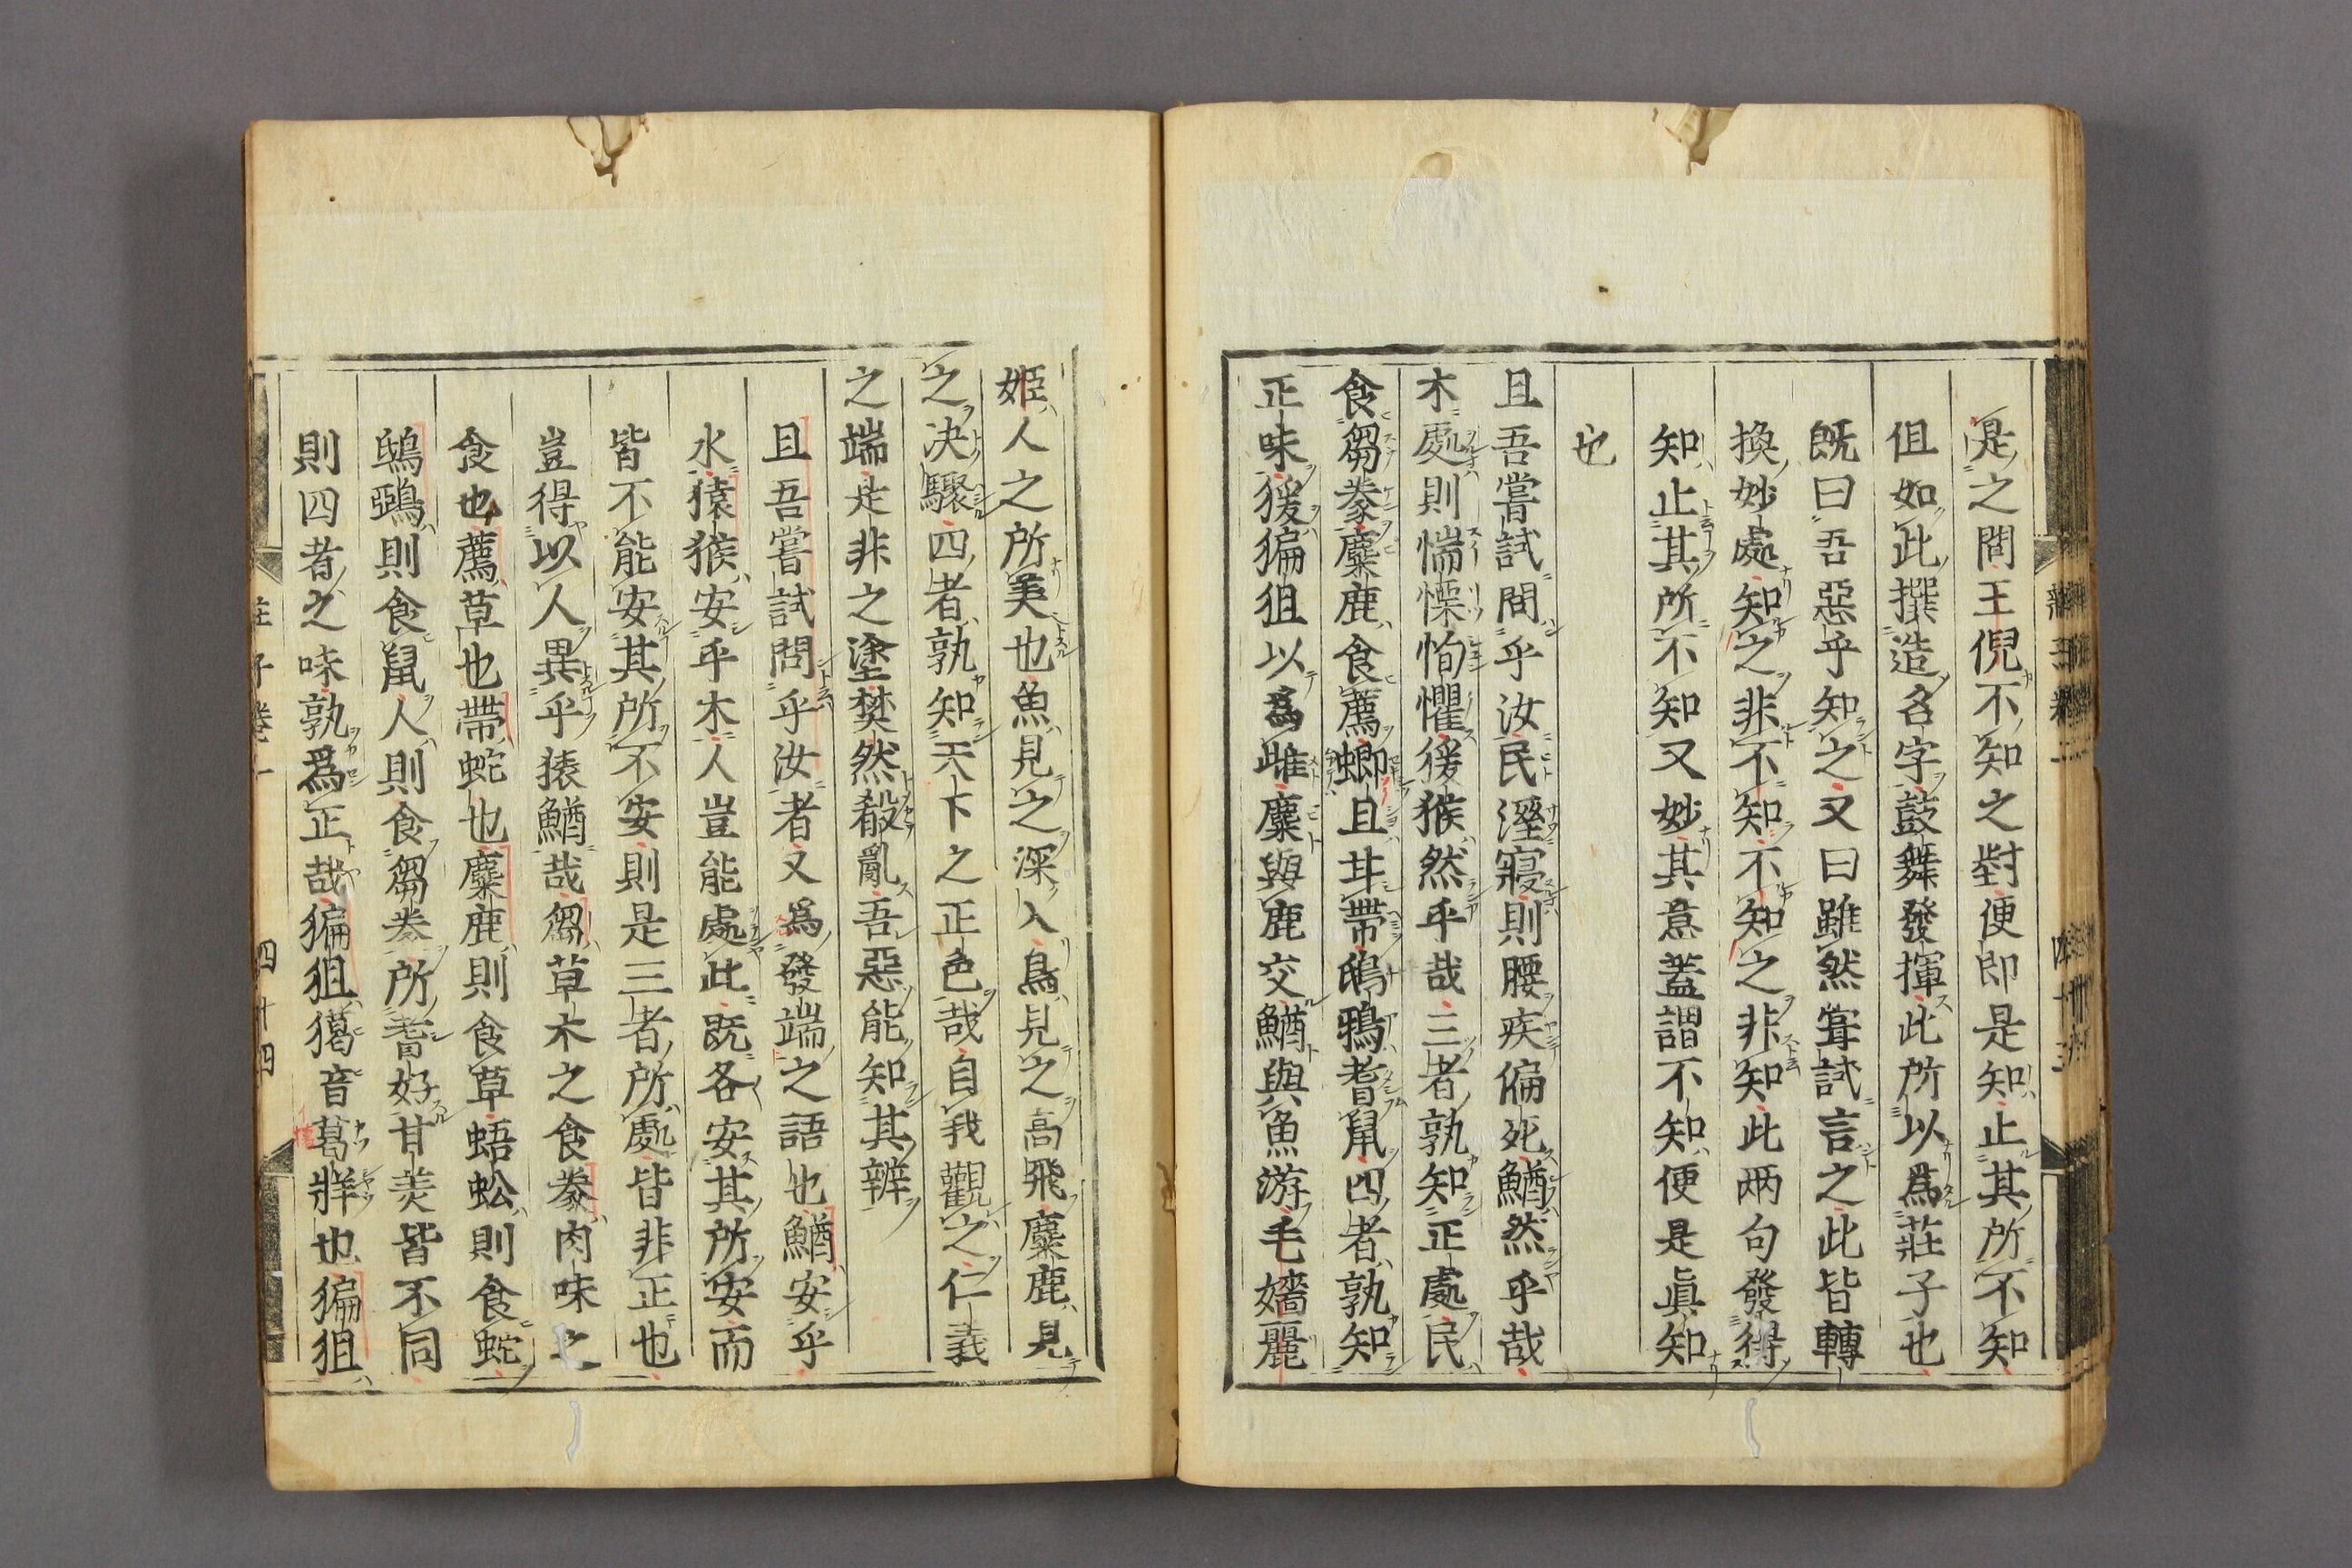 是之間王倪不知之對便即是知止其所不知
但如此撰造名字鼓舞發揮此所以爲莊子也
既曰吾惡乎知之又曰雖然甞試言之此皆轉
換妙處知之非不知不知之非知此兩句發得
知止其所不知又妙其意蓋謂不知便是眞知
也
且吾嘗試問乎汝民溼寢則腰疾偏死鰌然乎哉
木處則惴慄恂懼猨猴然乎哉三者孰知正處民
食芻豢麋鹿食薦蝍且甘帶鴟鴉耆鼠四者孰知
正味猨猵狙以爲雌麋與鹿交鰌與魚游毛嬙麗
姬人之所美也魚見之深入鳥見之高飛麋鹿見
之决驟四者孰知天下之正色哉自我觀之仁義
之端是非之塗樊然殽亂吾惡能知其辨
且吾嘗試問乎汝者又爲發端之語也鰌安乎
水猿猴安乎木人豈能處此既各安其所安而
皆不能安其所不安則是三者所處皆非正也
豈得以人異乎猿鰌哉芻草木之食豢肉味之
食也薦草也帶蛇也麋鹿則食草蜈蚣則食蛇
鴟鵶則食鼠人則食芻豢所耆好甘美皆不同
則四者之味孰爲正哉猵狙獦音葛牂也猵狙
莊子卷一 四十四